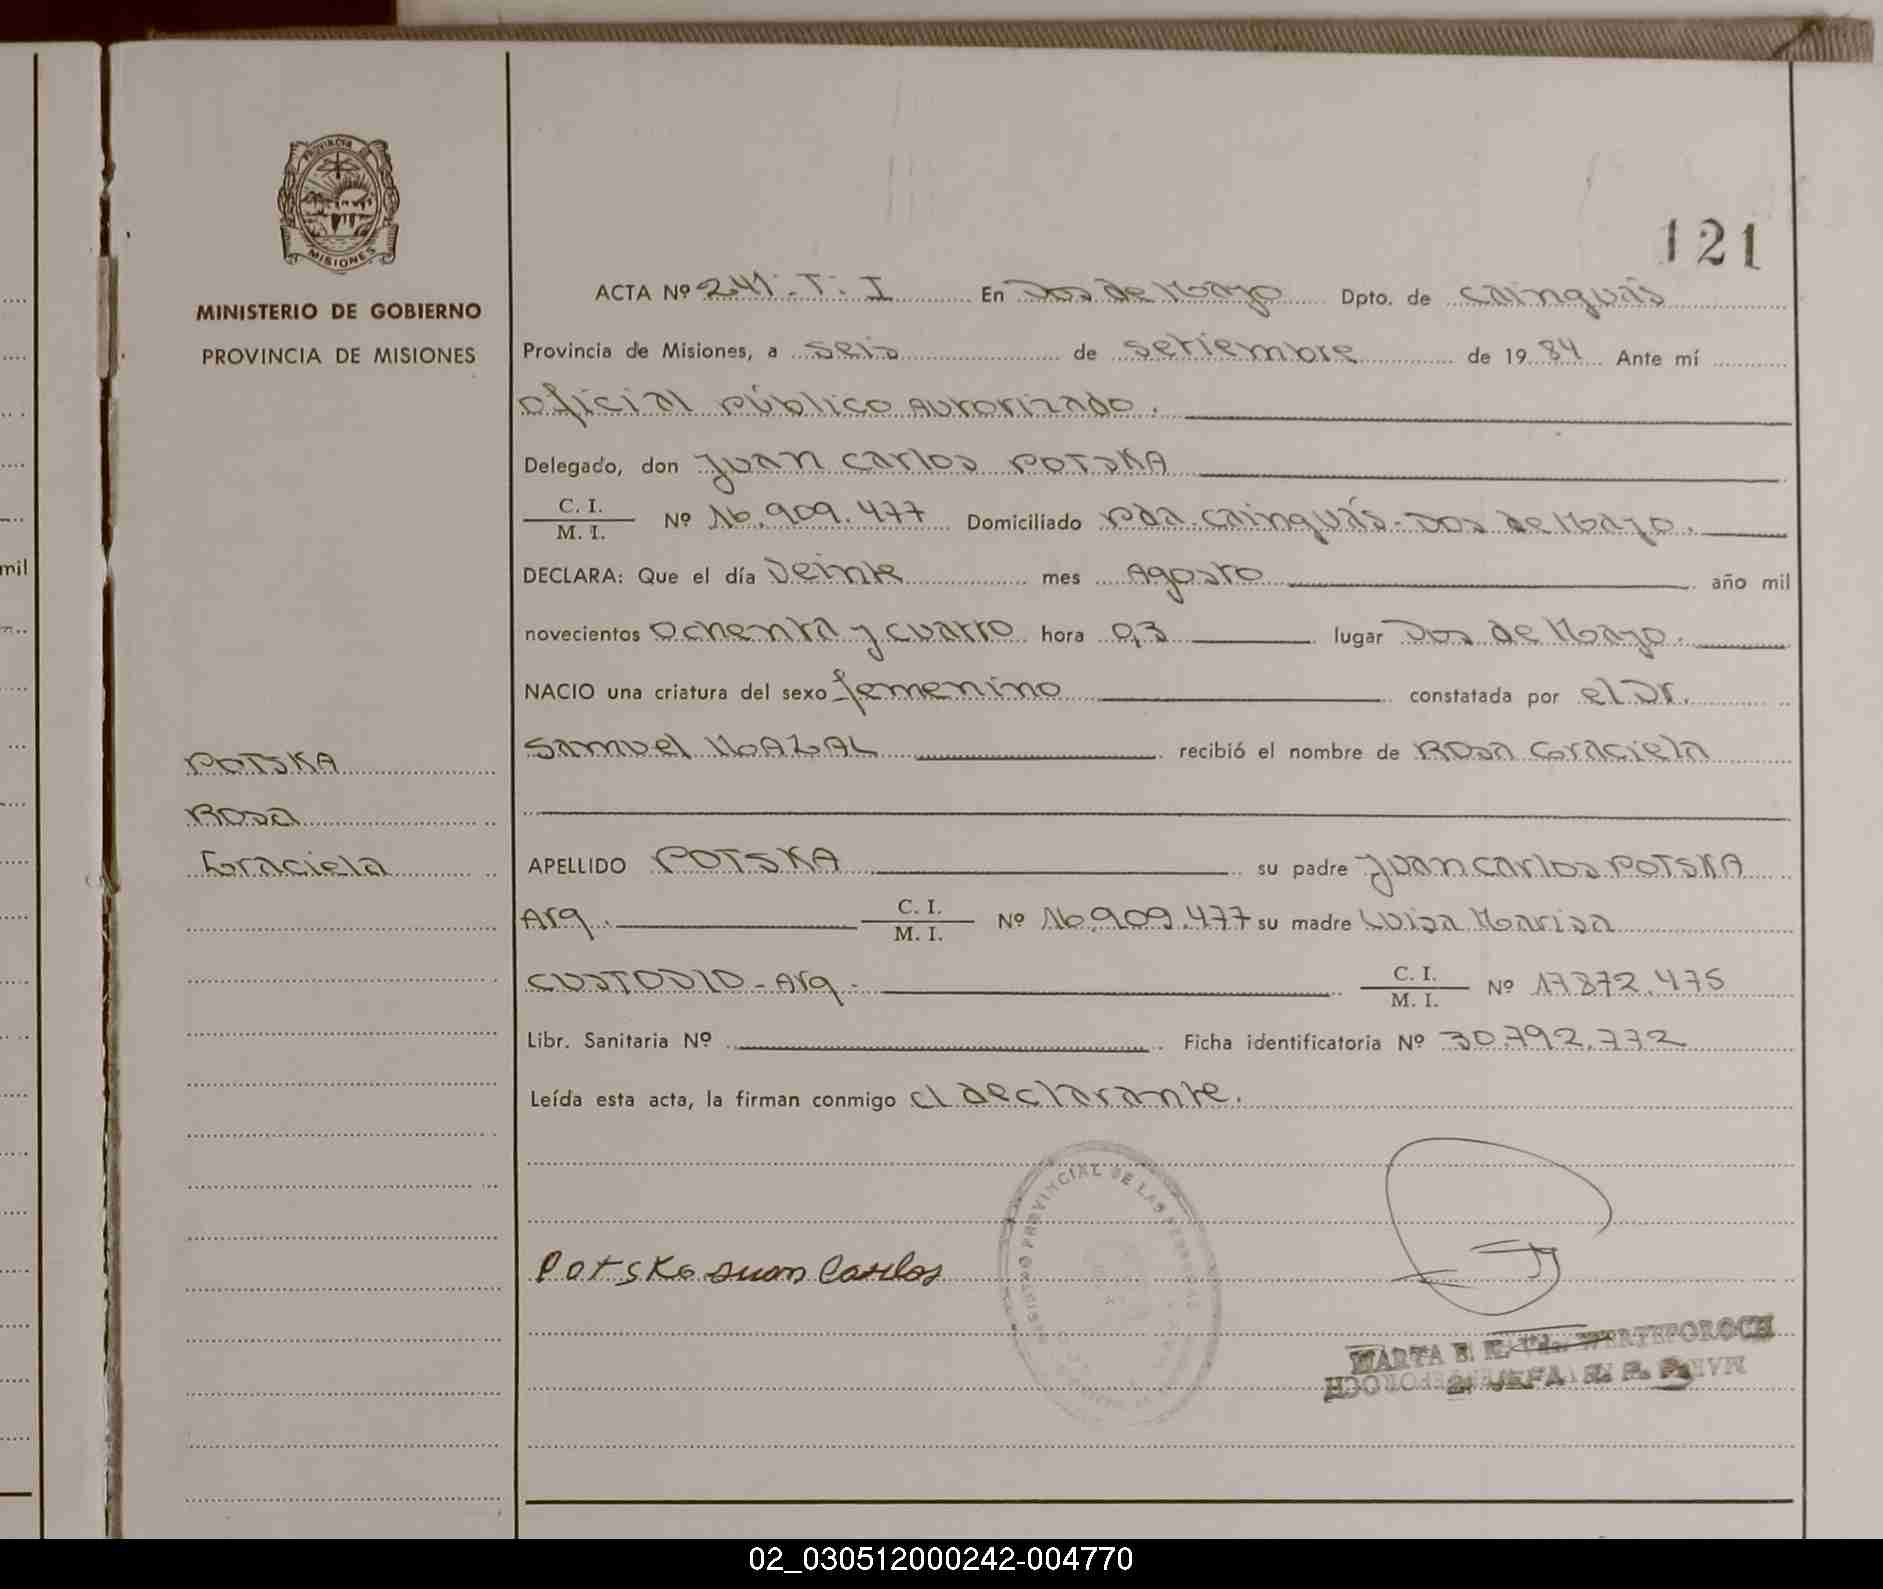 PROVINCIA DE
MISIONES
MINISTERIO DE GOBIERNO
PROVINCIA DE MISIONES
POTSKA
Rosa
Graciela
mil
121
ACTA Nº 241. T. I En Dos de Mayo Dpto. de Cainguás
Provincia de Misiones, a seis de setiembre de 1984 Ante mí
oficial público autorizado.
Delegado, don Juan Carlos POTSKA
C. I.
M. I. Nº 16.909.477 Domiciliado Pda. Cainguás-Dos de Mayo.
DECLARA: Que el día Veinte mes Agosto año mil
novecientos ochenta y cuatro hora 0,3 lugar Dos de Mayo.
NACIO una criatura del sexo femenino constatada por el Dr.
Samuel MOAZAL recibió el nombre de Rosa Graciela
APELLIDO POTSKA su padre Juan Carlos POTSKA
Arg. C. I.
M. I. Nº 16.909.477 su madre Luisa Marisa
CUSTODIO - Arg. C. I.
M. I. Nº 17872.475
Libr. Sanitaria Nº Ficha identificatoria Nº 30.792.772
Leída esta acta, la firman conmigo el declarante.
REGISTRO PROVINCIAL DE LAS PERSONAS
Potska Juan Carlos
MARTA E. K. Vda. WERTEPOROCH
2ª JEFA R. P. P.
02_030512000242-004770